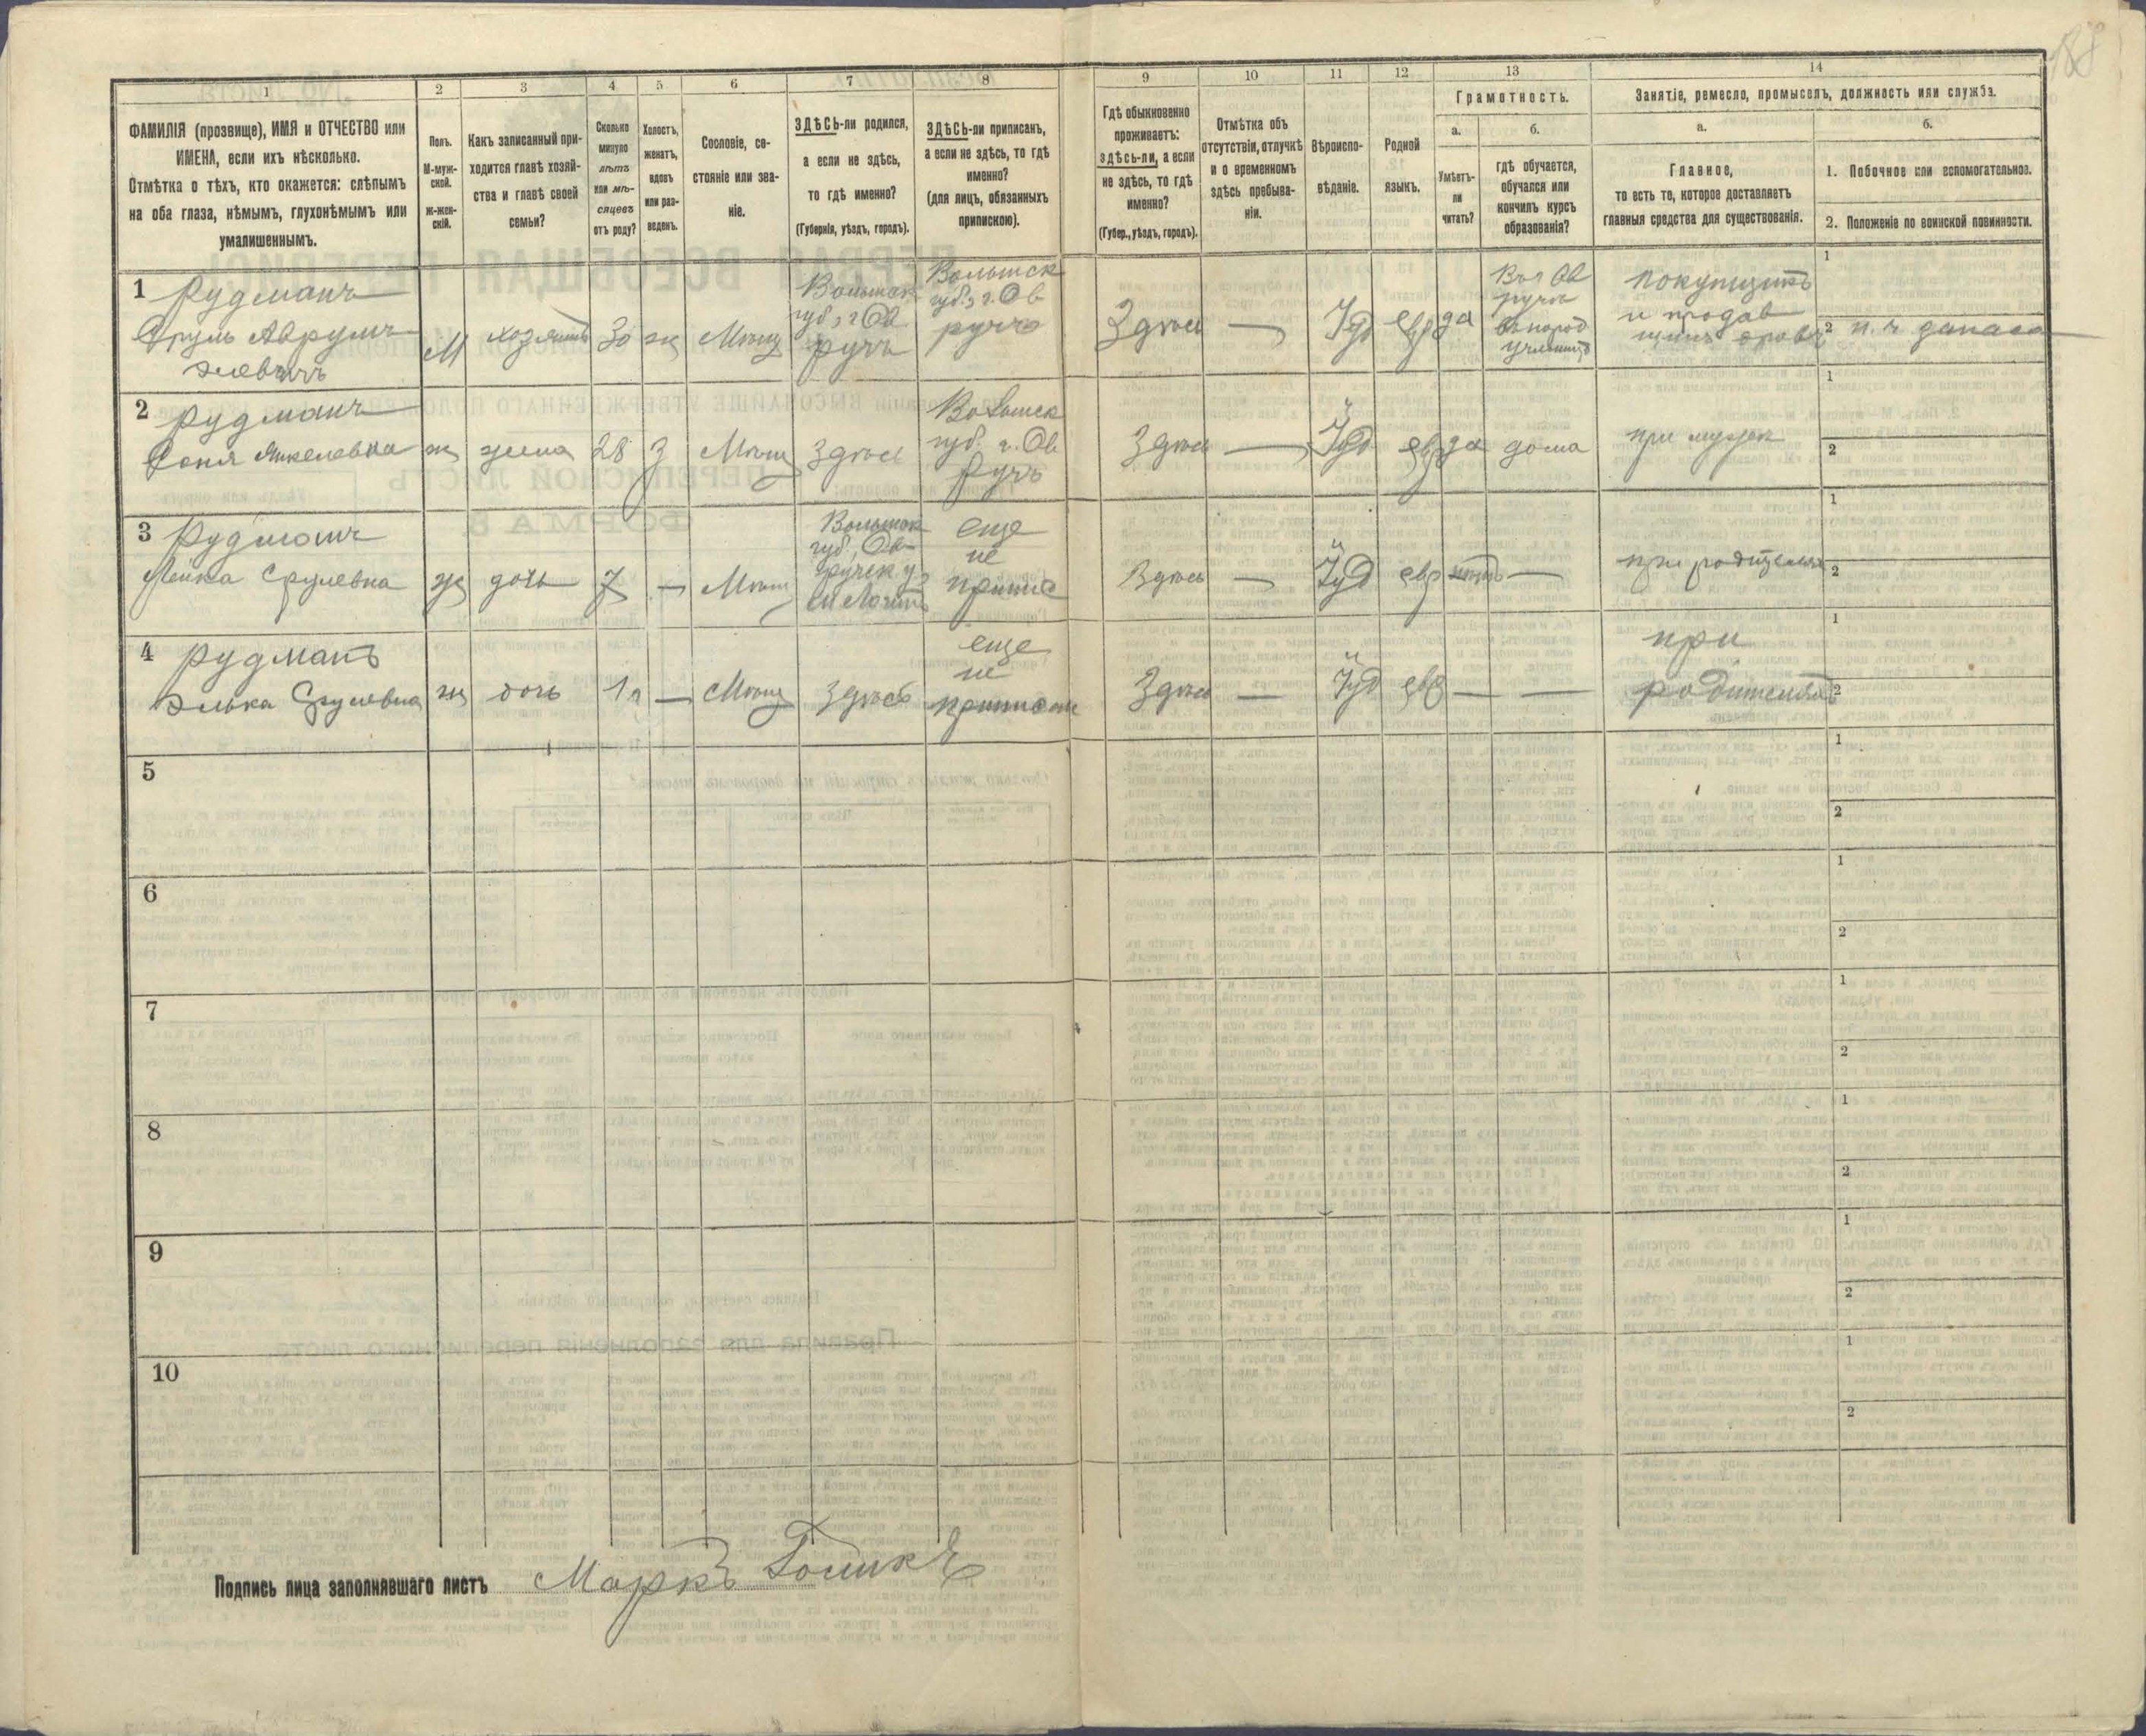 188
1
2
3
4
5
6
7
8
ФАМИЛІЯ (прозвище), ИМЯ и ОТЧЕСТВО или
ИМЕНА, если ихъ нѣсколько.
Отмѣтка о тѣхъ, кто окажется: слѣпымъ
на оба глаза, нѣмымъ, глухонѣмымъ или
умалишеннымъ.
Полъ.
М-муж-
ской.
Ж-жен-
скій.
Какъ записанный при-
ходится главѣ хозяй-
ства и главѣ своей
семьи?
Сколько
минуло
лѣтъ
или мѣ-
сяцевъ
отъ роду?
Холостъ,
женатъ,
вдовъ
или раз-
веденъ.
Сословіе, со-
стояніе или зва-
ніе.
ЗДѢСЬ-ли родился,
а если не здѣсь,
то гдѣ именно?
(Губернія, уѣздъ, городъ).
ЗДѢСЬ-ли приписанъ,
а если не здѣсь, то гдѣ
именно?
(для лицъ, обязанныхъ
припискою).
9
10
11
12
13
14
Гдѣ обыкновенно
проживаетъ:
здѣсь-ли, а если
не здѣсь, то гдѣ
именно?
(Губер., уѣздъ, городъ).
Отмѣтка объ
отсутствіи, отлучкѣ
и о временномъ
здѣсь пребыва-
ніи.
Вѣроиспо-
вѣданіе.
Родной
языкъ.
Грамотность.
а.
Умѣетъ-
ли
читать?
б.
гдѣ обучается,
обучался или
кончилъ курсъ
образованія?
Занятіе, ремесло, промыселъ, должность или служба.
а.
Главное,
то есть то, которое доставляетъ
главныя средства для существованія.
б.
1. Побочное или вспомогательное.
2. Положеніе по воинской повинности.
1 Рудманъ
Сруль Аврумъ
Элевичъ
М
хозяинъ
30
ж
Мѣщ
Волынск
губ., г. Ов
ручъ
Волынск
губ., г. Ов
ручъ
Здѣсь
—
Іуд
евр
да
Въ г. Ов
ручѣ
въ народ
училищѣ
покупщикъ
и продав
щикъ дровъ
1
2 н. ч. запаса
2 Рудманъ
Соня Янкелевна
ж
жена
28
з
Мѣщ
Здѣсь
Волынск
губ. г. Ов
ручъ
Здѣсь
—
Іуд
евр
да
дома
при мужѣ
1
2
3 Рудманъ
Мейка Срулевна
ж
дочь
7
—
Мѣщ
Волынск
губ., Ов-
ручск у
еще
не
припис
Здѣсь
—
Іуд
евр
нѣтъ
—
при родителяхъ
1
2
4 Рудманъ
Элька Срулевна
ж
дочь
—
Мѣщ
Здѣсь
еще
не
приписан
Здѣсь
—
Іуд
евр
—
—
при
родителяхъ
1
2
5
1
2
6
1
2
7
1
2
8
1
2
9
1
2
10
1
2
Подпись лица заполнявшаго листъ Маркъ